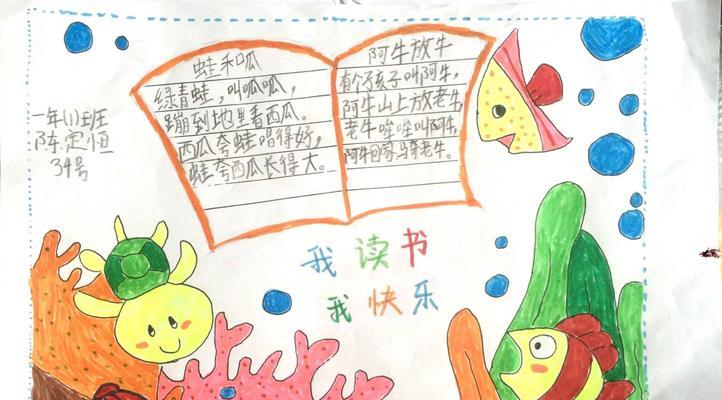 一年(1)班
陈定恒
34号
蛙和呱
绿青蛙，叫呱呱，
蹦到地里看西瓜。
西瓜夸蛙唱得好，
蛙夸西瓜长得大。
阿牛放牛
有个孩子叫阿牛，
阿牛山上放老牛，
老牛哞哞叫阿牛，
阿牛回家骑老牛。
我读书
我快乐